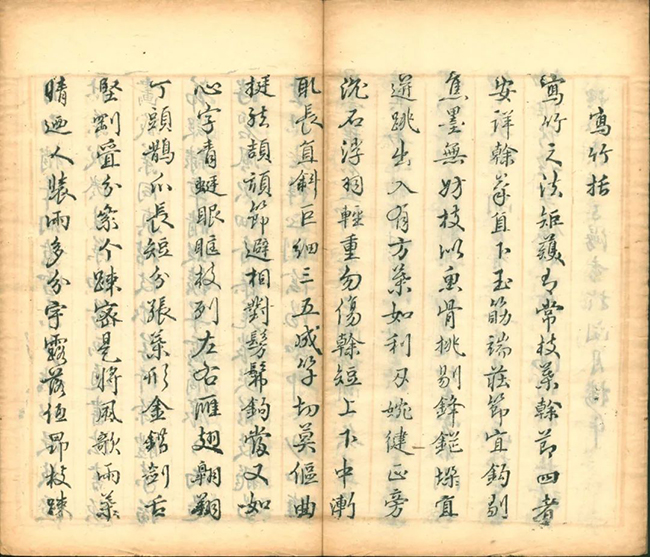 寫竹括
寫竹之法矩矱有常枝葉幹節四者
安詳幹篆直下玉筋端莊節宜鉤剔
焦墨無妨枝以魚骨挑剔鋒鋩垛宜
迸跳出入有方葉如利刃婉健正旁
沉石浮羽輕重勿傷幹短上下中漸
取長直斜巨細三五成竿切莫傴曲
挺弦頡頏節避相對髣髴鉤當又如
心字青蜓眼眶枝列左右雁翅翺翔
丁頭鵲爪長短分張葉形金錯劍舌
堅剛疊分个疎密是將風歌雨葉
晴迎人裝雨多分字露落伍昂枝疎